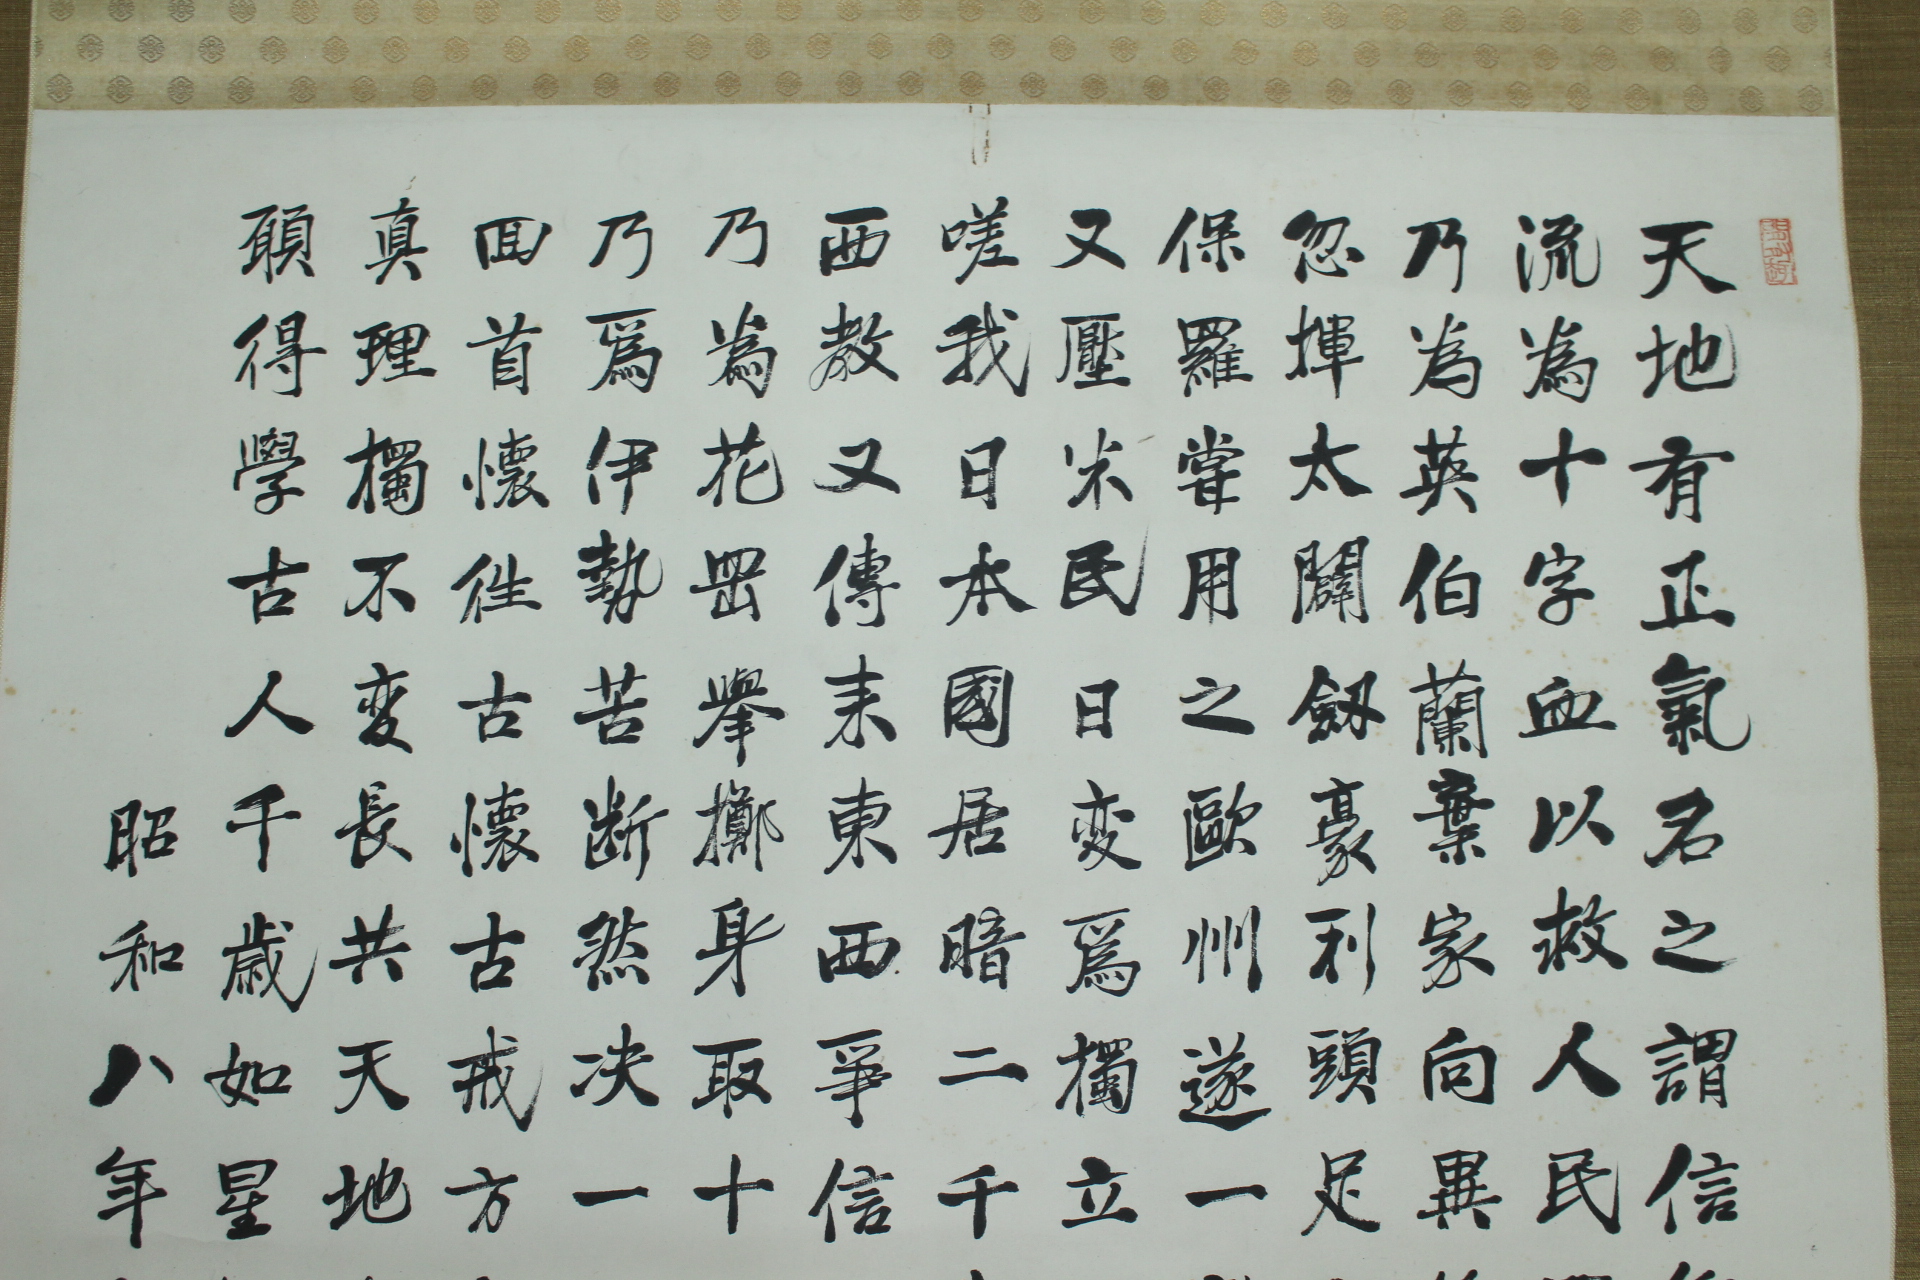 天地有正氣名之謂信
流為十字血以救人民
乃為英伯蘭棄家向異
忽揮太闢劔豪利頭足
保羅嘗用之歐州遂一
又壓米民日変爲獨立
嗟我日本國居暗二千
西教又傳耒東西爭信
乃為花岡擧擲身取十
乃爲伊勢苦断然决一
回首懐徃古懐古戒方
真理獨不変長共天地
願得學古人千歳如星
昭和八年